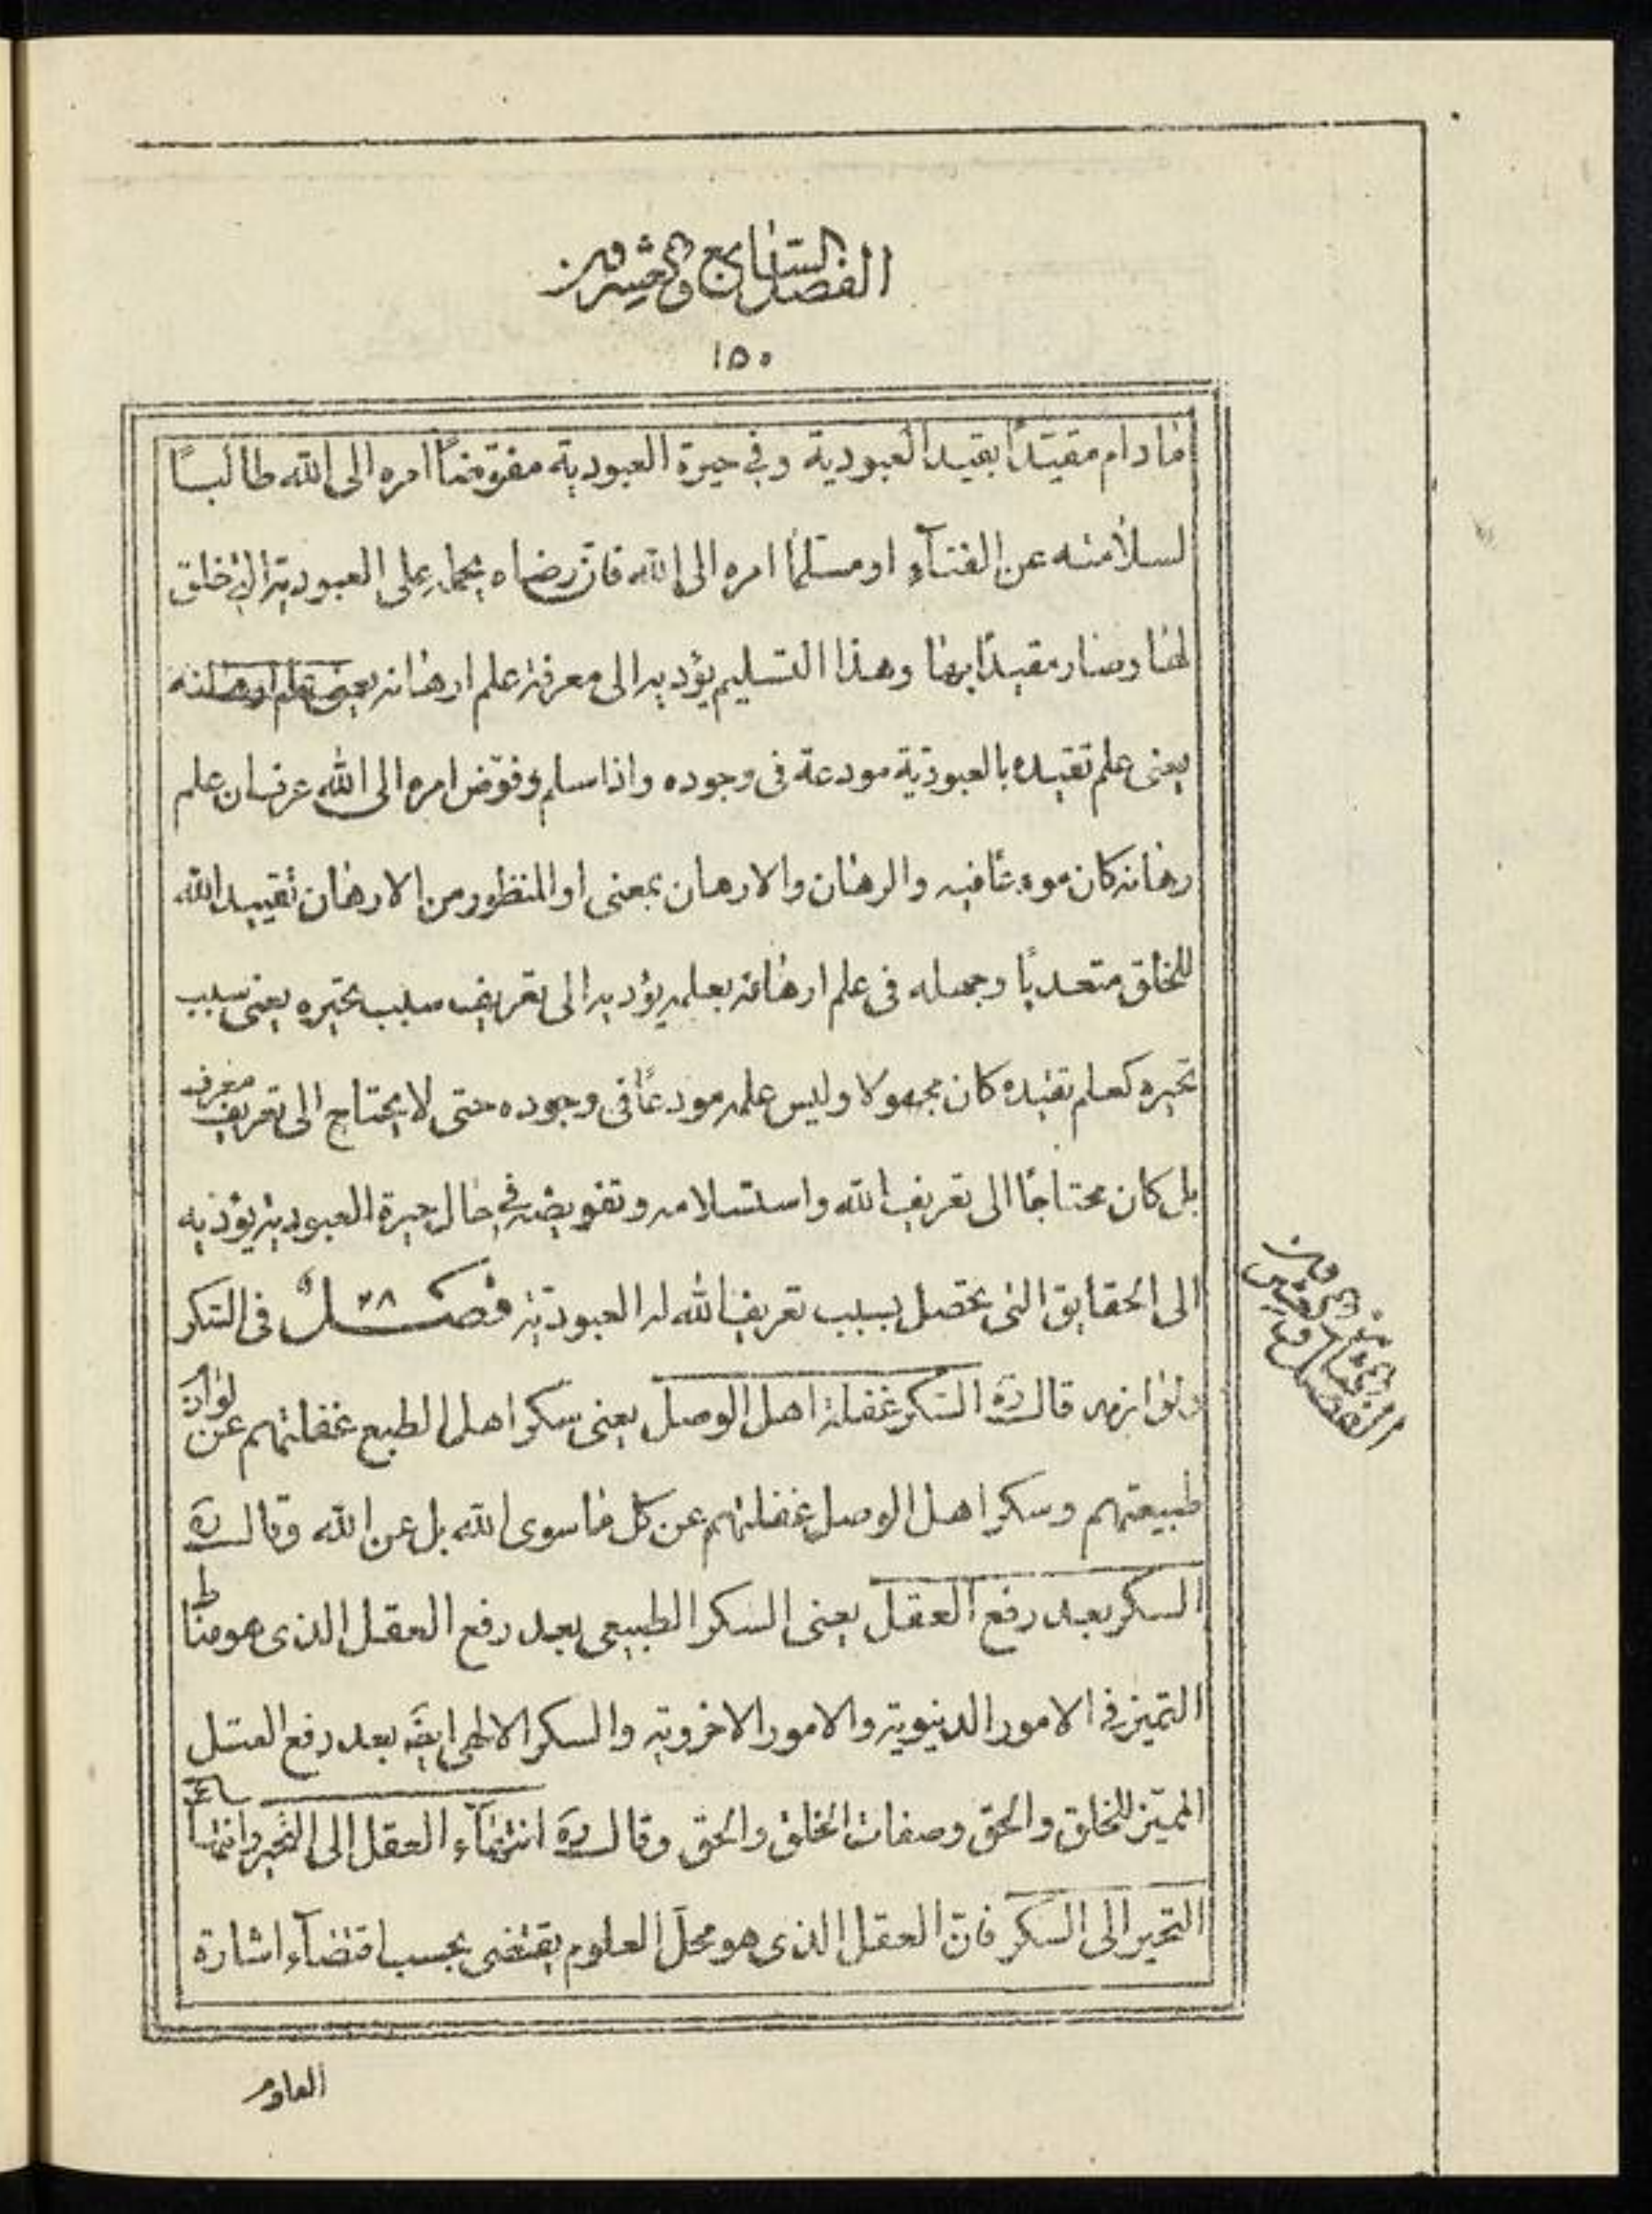 الفصل السابع والعشرون
١٥٠
مادام مقيّدًا بقيد العبودية وفي حيرة العبودية مفوّضًا امره الى الله طالبًا
لسلامته عن الفنآء او مسلّمًا امره الى الله فانّ رضاه يحمله على العبودية التي خلق
لها وصار مقيدًا بها وهذا التسليم يؤديه الى معرفة علم ارهانه يعنى علم ارهانه
يعنى علم تقيده بالعبودية مودعة فى وجوده واذا سلم وفوّض امره الى الله عرف ان علم
رهانه كان مودعًا فيه والرهان والارهان بمعنى او المنظور من الارهان تقييد الله
للخلق متعديًا وجهله فى علم ارهانه بعلمه يؤديه الى تعريف سبب تحيره يعنى سبب
تحيره كعلم تقيده كان مجهولا وليس علمه مودعًا فى وجوده حتى لا يحتاج الى تعريف معرف
بل كان محتاجًا الى تعريف الله واستسلامه وتفويضه في حال حيرة العبودية يؤديه
الى الحقايق التى تحصل بسبب تعريف الله له العبودية فصل ٢٨ فى السكر
ولوازمه قال ره السكر غفلة اهل الوصل يعنى سكر اهل الطبع غفلتهم عن لوازم
طبيعتهم وسكر اهل الوصل غفلتهم عن كل ما سوى الله بل عن الله وقال ره
السكر بعد رفع العقل يعنى السكر الطبيعى بعد رفع العقل الذى هو مناط
التميز في الامور الدنيوية والامور الاخروية والسكر الالهى ايضًا بعد رفع العقل
المميّز للخلق والحق وصفات الخلق والحق وقال ره انتهآء العقل الى التحير وانتهاء
التحير الى السكر فانّ العقل الذى هو محل العلوم يقتضى بحسب اقتضآء اشارة
الفصل الثامن والعشرون
العلوم